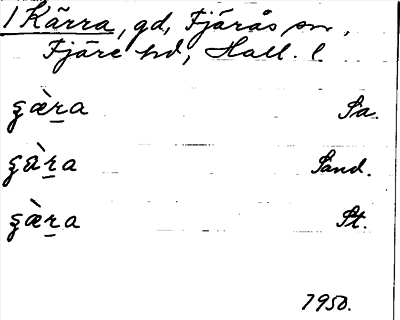 1 Kärra, gd, Fjärås sn,
Fjäre hd, Hall. l.
ʂæ̀ṟa Sa.
ʂæ̀ṟa Sand.
ʂæ̀ṟa St.
1950.